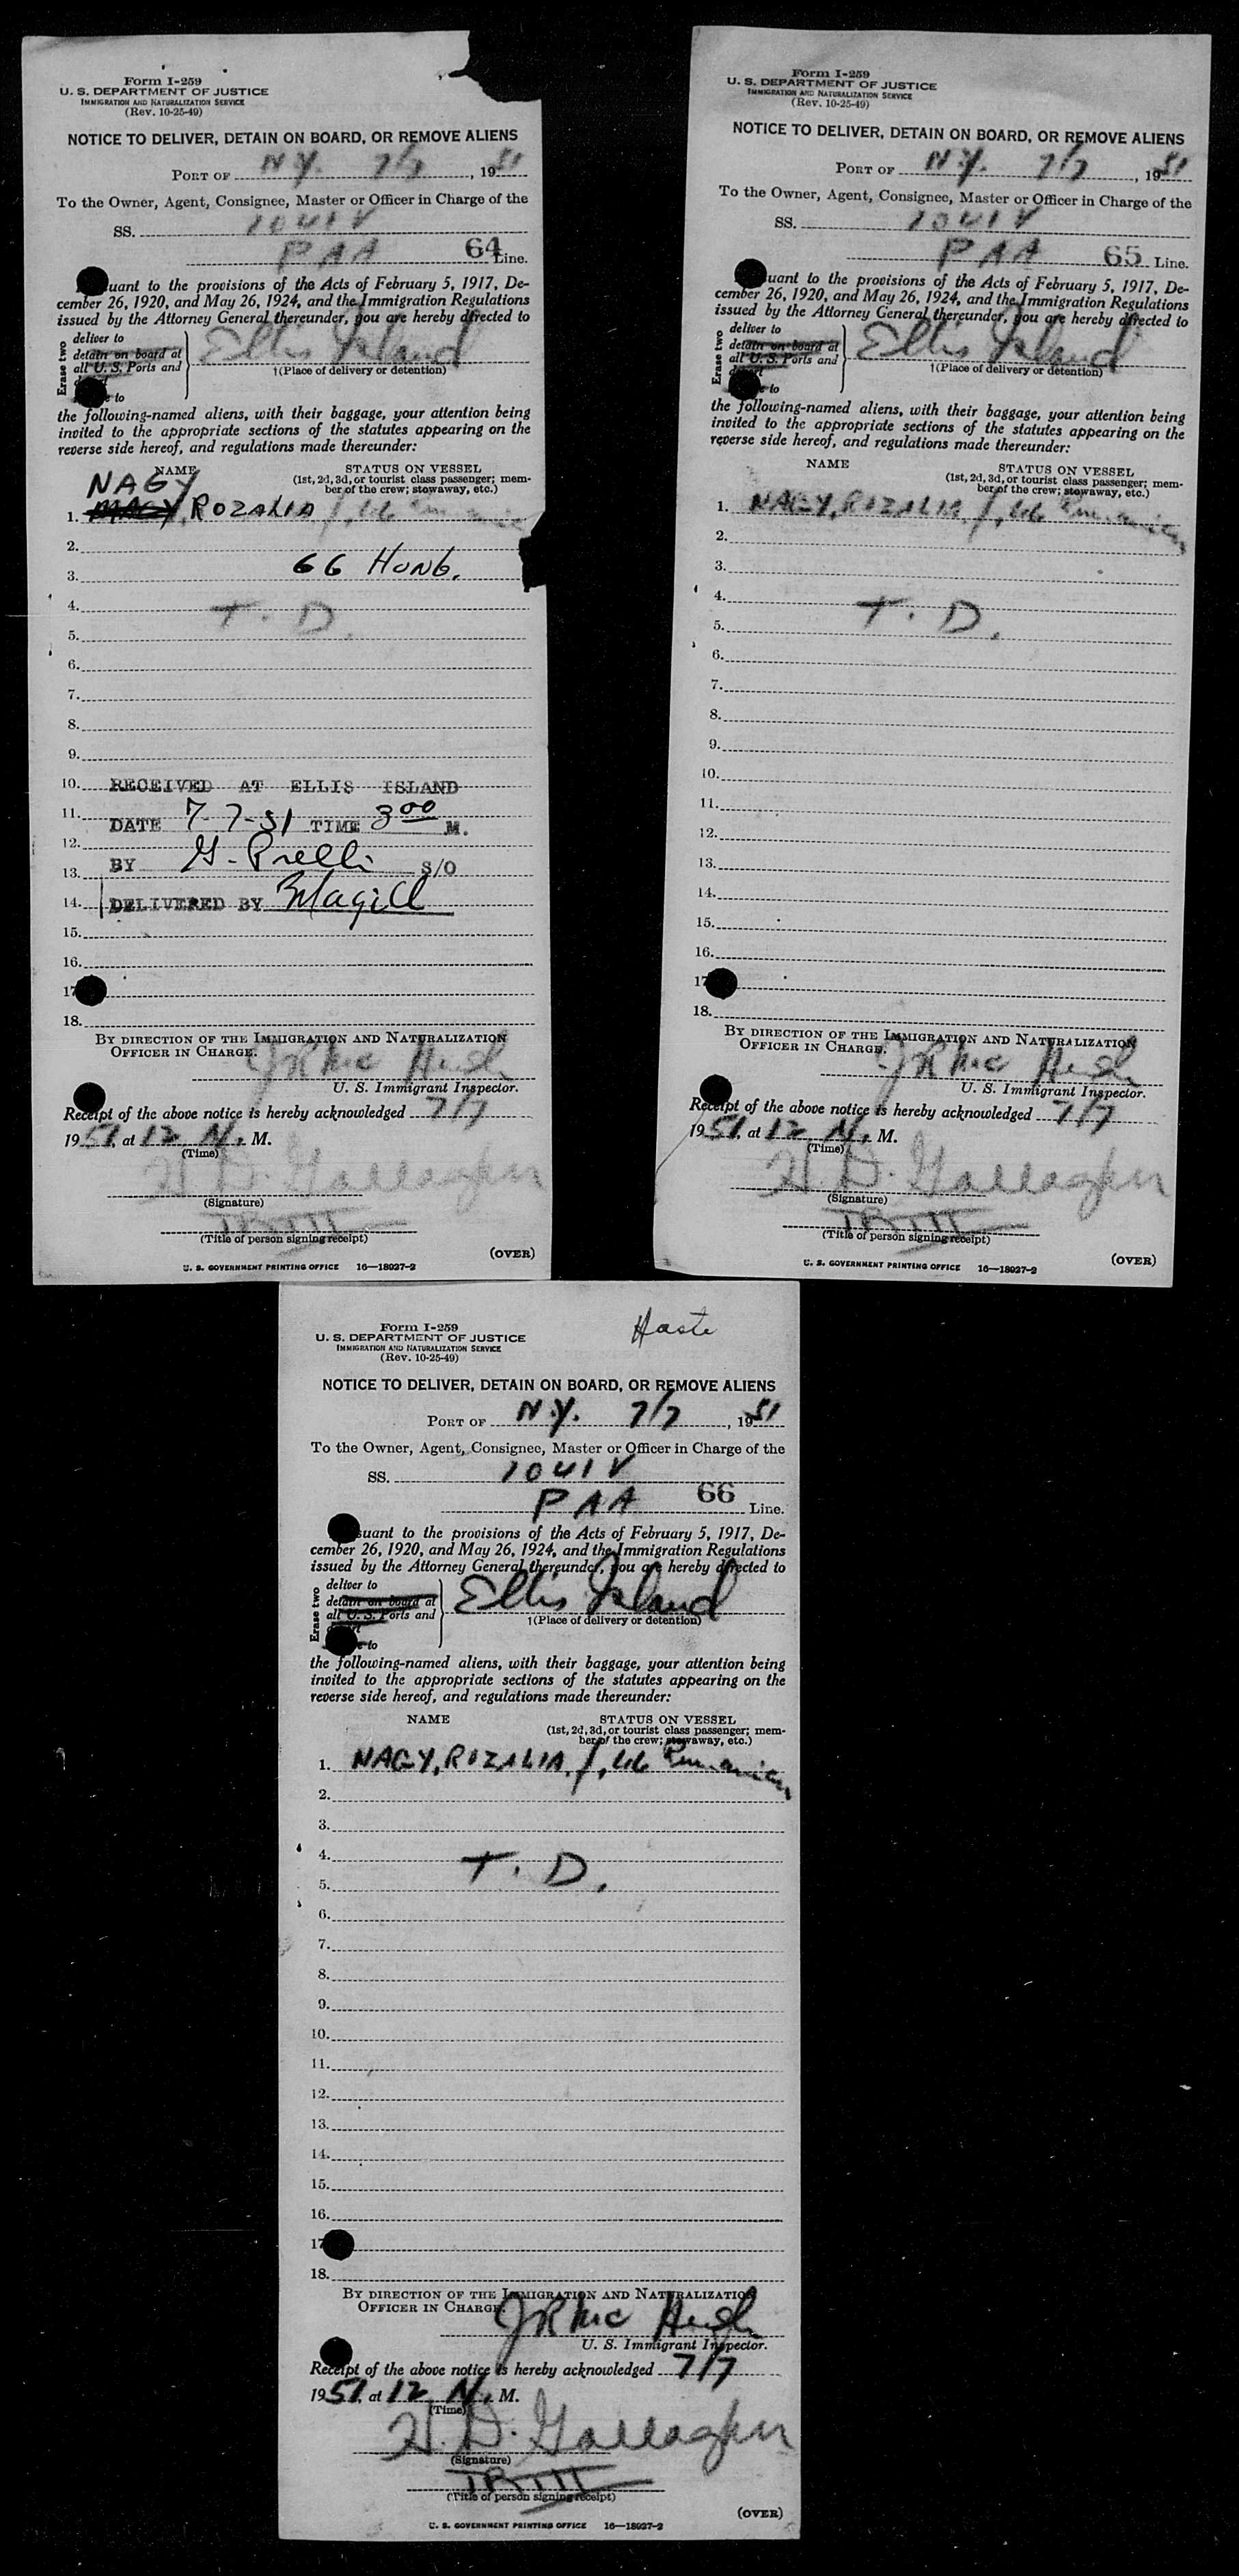 Form I-259
U. S. DEPARTMENT OF JUSTICE
IMMIGRATION AND NATURALIZATION SERVICE
(Rev. 10-25-49)
NOTICE TO DELIVER, DETAIN ON BOARD, OR REMOVE ALIENS
PORT OF N.Y. 7/7, 1951
To the Owner, Agent, Consignee, Master or Officer in Charge of the
SS. 1041V
PAA 64 Line.
uant to the provisions of the Acts of February 5, 1917, De-
cember 26, 1920, and May 26, 1924, and the Immigration Regulations
issued by the Attorney General thereunder, you are hereby directed to
Erase two
deliver to
detain on board at
all U. S. Ports and
to
Ellis Island
†(Place of delivery or detention)
the following-named aliens, with their baggage, your attention being
invited to the appropriate sections of the statutes appearing on the
reverse side hereof, and regulations made thereunder:
NAME
STATUS ON VESSEL
(1st, 2d, 3d, or tourist class passenger; mem-
ber of the crew; stowaway, etc.)
NAGY
1. NAGY, ROZALIA /, 46
2.
66 HUNG.
3.
4. T. D.
5.
6.
7.
8.
9.
10. RECEIVED AT ELLIS ISLAND
11. DATE 7-7-51 TIME 3 00 M.
12.
13. BY G. Prelli S/O
14. DELIVERED BY Magill
15.
16.
17
18.
BY DIRECTION OF THE IMMIGRATION AND NATURALIZATION
OFFICER IN CHARGE.
JR Mc Hugh
U. S. Immigrant Inspector.
Receipt of the above notice is hereby acknowledged 7/7
1951, at 12 N. M.
(Time)
H. D. Gallagher
(Signature)
(Title of person signing receipt)
(OVER)
U. S. GOVERNMENT PRINTING OFFICE 16—18927-2
Form I-259
U. S. DEPARTMENT OF JUSTICE
IMMIGRATION AND NATURALIZATION SERVICE
(Rev. 10-25-49)
NOTICE TO DELIVER, DETAIN ON BOARD, OR REMOVE ALIENS
PORT OF N.Y. 7/7, 1951
To the Owner, Agent, Consignee, Master or Officer in Charge of the
SS. 1041V
PAA 65 Line.
uant to the provisions of the Acts of February 5, 1917, De-
cember 26, 1920, and May 26, 1924, and the Immigration Regulations
issued by the Attorney General thereunder, you are hereby directed to
Erase two
deliver to
detain on board at
all U. S. Ports and
to
Ellis Island
†(Place of delivery or detention)
the following-named aliens, with their baggage, your attention being
invited to the appropriate sections of the statutes appearing on the
reverse side hereof, and regulations made thereunder:
NAME
STATUS ON VESSEL
(1st, 2d, 3d, or tourist class passenger; mem-
ber of the crew; stowaway, etc.)
1. NAGY, ROZALIA /, 46 Rumanian
2.
3.
4. T. D.
5.
6.
7.
8.
9.
10.
11.
12.
13.
14.
15.
16.
17
18.
BY DIRECTION OF THE IMMIGRATION AND NATURALIZATION
OFFICER IN CHARGE.
JR Mc Hugh
U. S. Immigrant Inspector.
Receipt of the above notice is hereby acknowledged 7/7
1951, at 12 N. M.
(Time)
H. D. Gallagher
(Signature)
(Title of person signing receipt)
(OVER)
U. S. GOVERNMENT PRINTING OFFICE 16—18927-2
Haste
Form I-259
U. S. DEPARTMENT OF JUSTICE
IMMIGRATION AND NATURALIZATION SERVICE
(Rev. 10-25-49)
NOTICE TO DELIVER, DETAIN ON BOARD, OR REMOVE ALIENS
PORT OF N.Y. 7/7, 1951
To the Owner, Agent, Consignee, Master or Officer in Charge of the
SS. 1041V
PAA 66 Line.
uant to the provisions of the Acts of February 5, 1917, De-
cember 26, 1920, and May 26, 1924, and the Immigration Regulations
issued by the Attorney General thereunder, you are hereby directed to
Erase two
deliver to
detain on board at
all U. S. Ports and
to
Ellis Island
†(Place of delivery or detention)
the following-named aliens, with their baggage, your attention being
invited to the appropriate sections of the statutes appearing on the
reverse side hereof, and regulations made thereunder:
NAME
STATUS ON VESSEL
(1st, 2d, 3d, or tourist class passenger; mem-
ber of the crew; stowaway, etc.)
1. NAGY, ROZALIA /, 46 Rumanian
2.
3.
4. T. D.
5.
6.
7.
8.
9.
10.
11.
12.
13.
14.
15.
16.
17
18.
BY DIRECTION OF THE IMMIGRATION AND NATURALIZATION
OFFICER IN CHARGE
JR Mc Hugh
U. S. Immigrant Inspector.
Receipt of the above notice is hereby acknowledged 7/7
1951, at 12 N. M.
(Time)
H. D. Gallagher
(Signature)
(Title of person signing receipt)
(OVER)
U. S. GOVERNMENT PRINTING OFFICE 16—18927-2